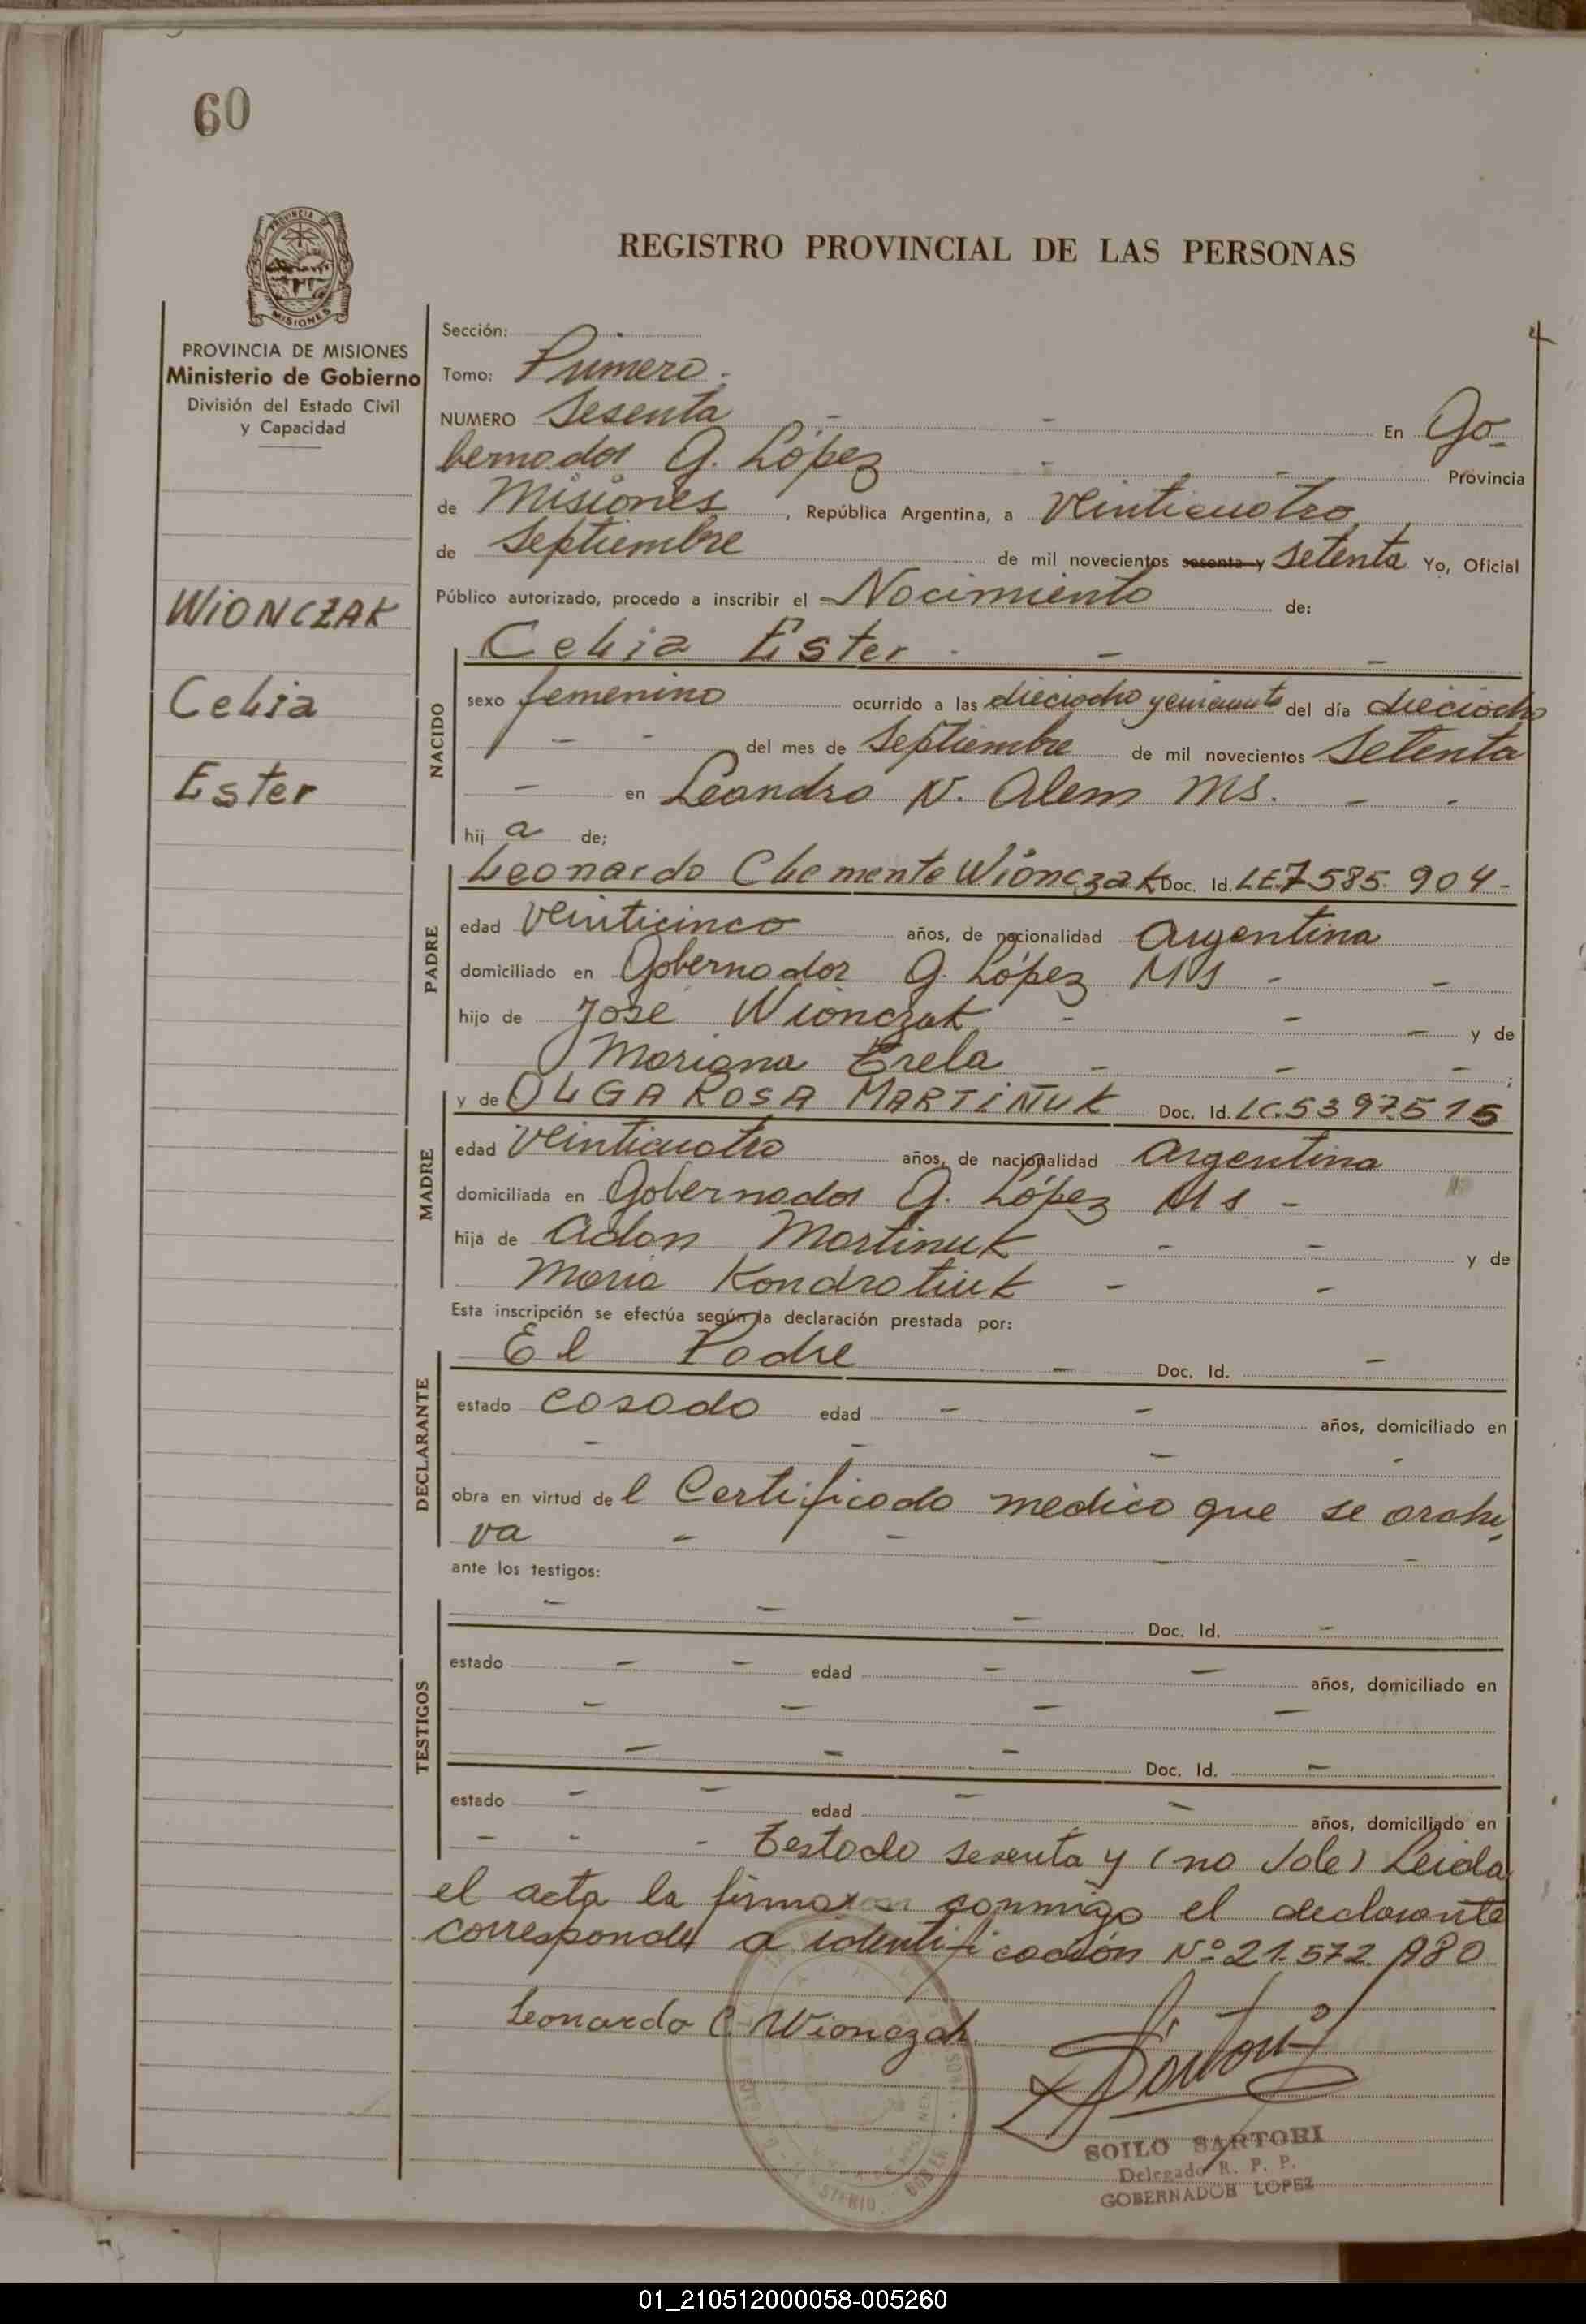 60
PROVINCIA DE MISIONES
MISIONES
PROVINCIA DE MISIONES
Ministerio de Gobierno
División del Estado Civil
y Capacidad
WiONCZAK
Celia
Ester
REGISTRO PROVINCIAL DE LAS PERSONAS
Sección: -
Tomo: Primero.
NUMERO Sesenta - - En Go-
bernador G. López - - Provincia
de Misiones, República Argentina, a veinticuatro
de Septiembre de mil novecientos sesenta y setenta Yo, Oficial
Público autorizado, procedo a inscribir el Nacimiento de:
NACIDO
Celia Ester - - -
sexo femenino ocurrido a las dieciocho y del día dieciocho
- - del mes de Septiembre de mil novecientos Setenta
- en Leandro N. Alem MS. - -
hij a de;
PADRE
Leonardo Clemente Wionczak Doc. Id. LE.7585.904-
edad veinticinco años, de nacionalidad Argentina
domiciliado en Gobernador G. López MS - -
hijo de José Wionczak - - - y de
Mariana Erela - - - ;
MADRE
y de OLGA ROSA MARTIÑUK Doc. Id. LC.5397.515
edad veinticuatro años, de nacionalidad Argentina
domiciliada en Gobernador G. López MS -
hija de Adan Martinuk - - y de
Maria Kondratiuk - -
Esta inscripción se efectúa según la declaración prestada por:
DECLARANTE
El Padre - Doc. Id. -
estado casado edad - - años, domiciliado en
- - - -
obra en virtud de l Certificado medico que se archi-
va - - - -
ante los testigos:
TESTIGOS
- - - Doc. Id. -
estado - - edad - - años, domiciliado en
- - - -
- - - Doc. Id. -
estado - - edad - - años, domiciliado en
- - - Testado sesenta y (no Vale) Leida
el acta la firman conmigo el declarante
corresponde a identificación Nº 21.572.980
Leonardo C. Wionczak
Sartori
SOILO SARTORI
Delegado R. P. P.
GOBERNADOR LOPEZ
01_210512000058-005260